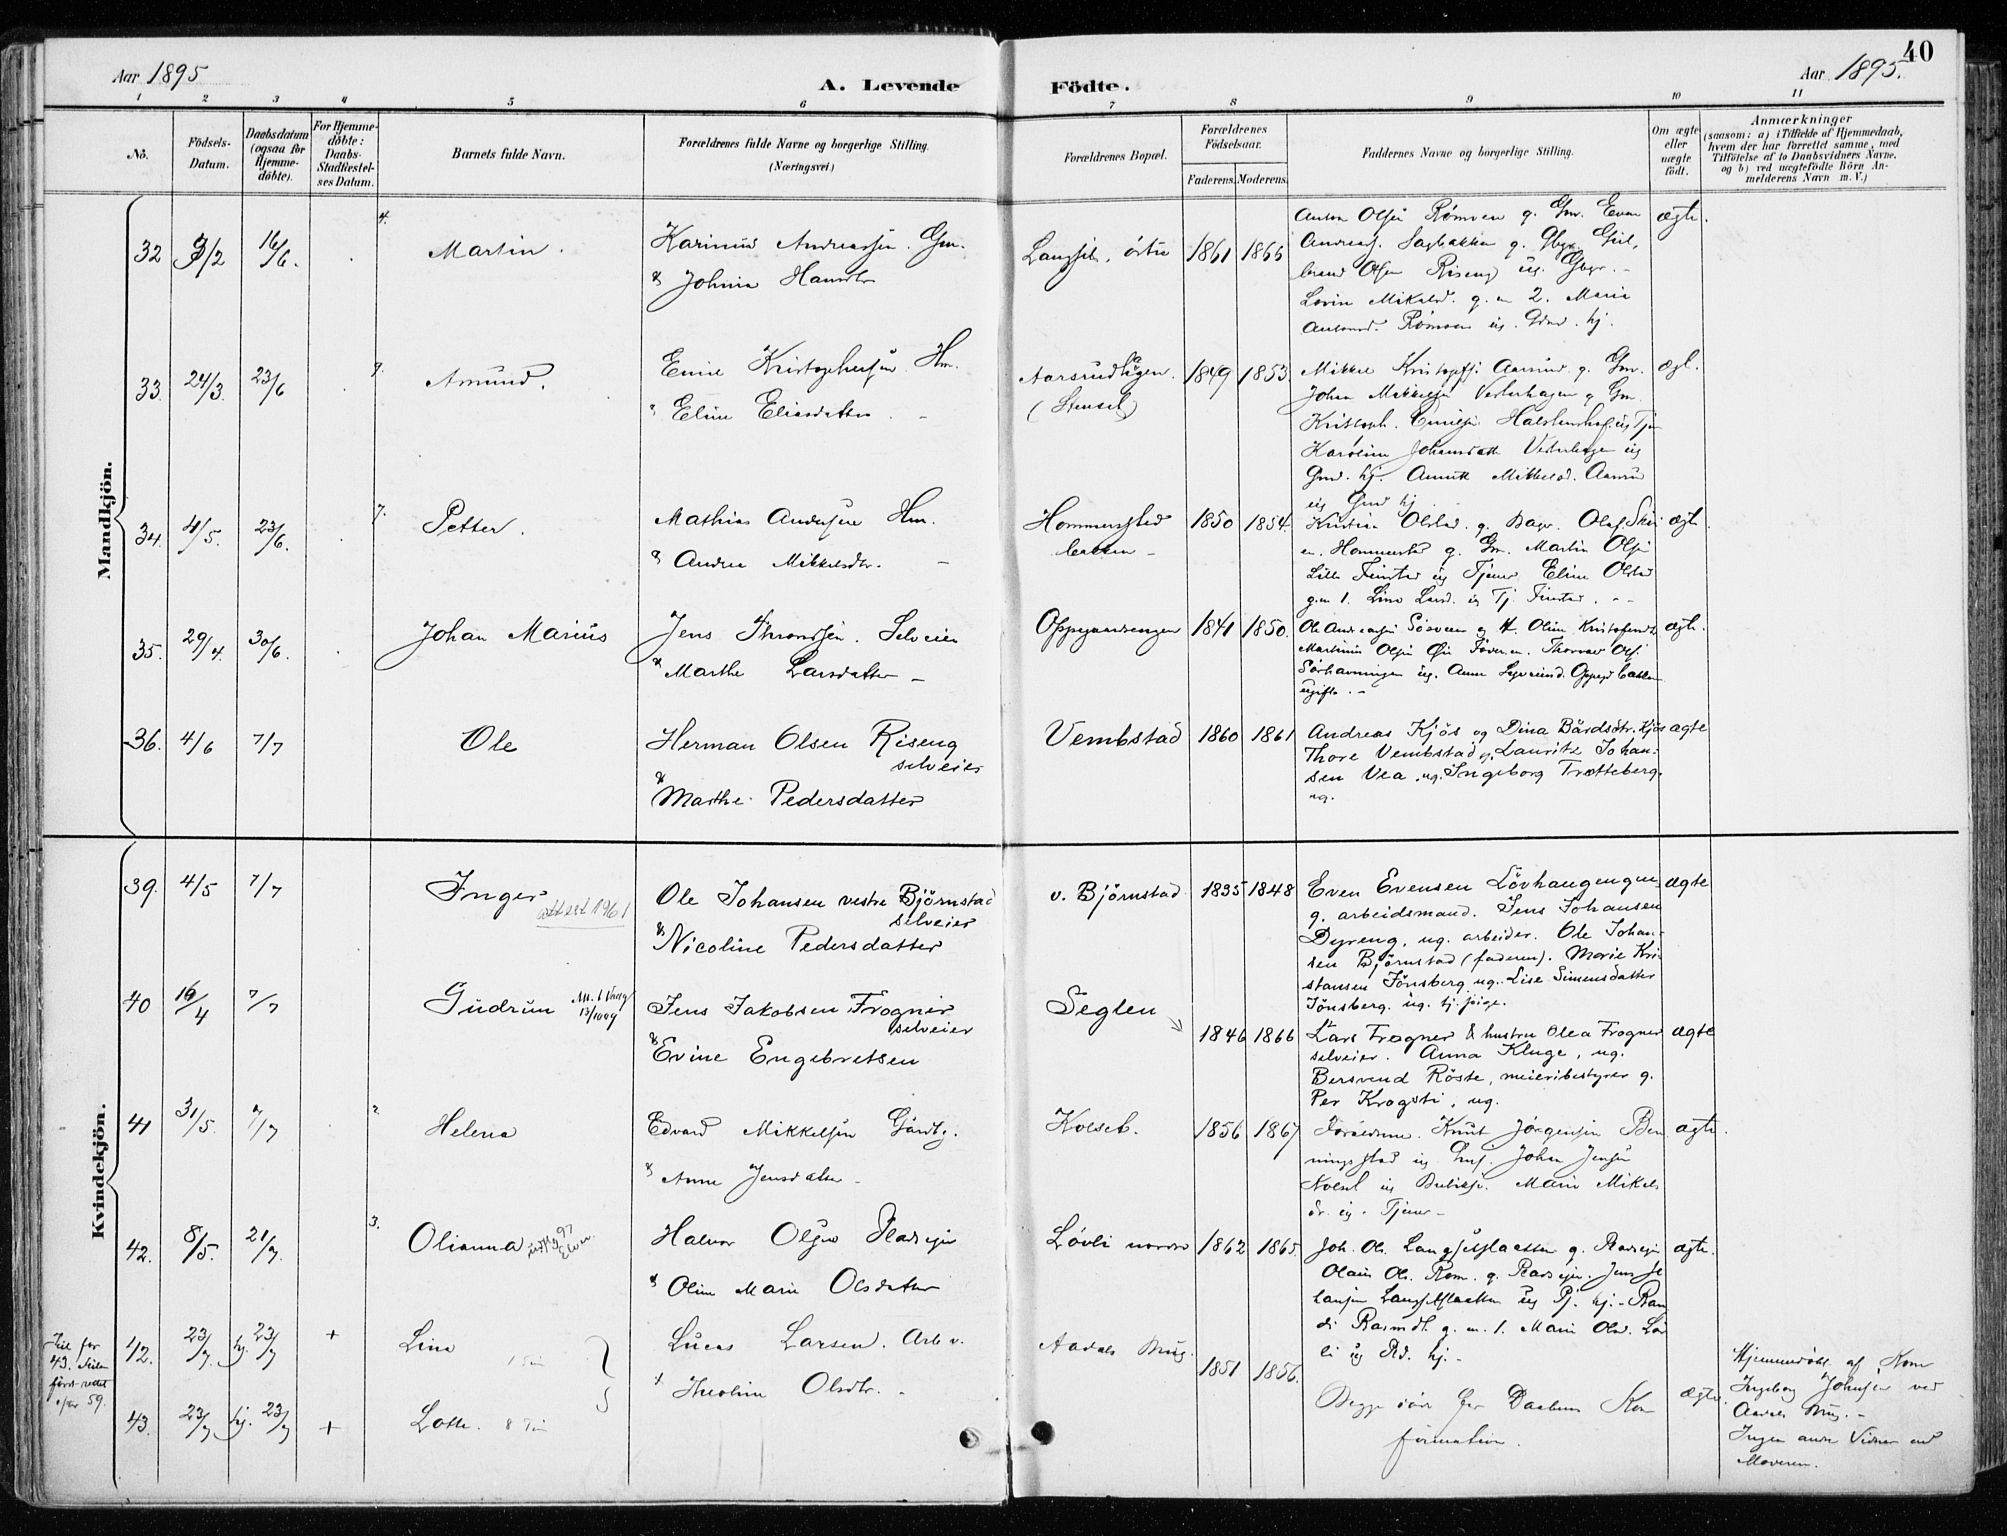 40
Aar 1895
A. Levende Födte.
Aar 1895.
1 2 3 4 5 6 7 8 9 10 11
No.
Födsels-Datum.
Daabsdatum (ogsaa for Hjemme-döbte).
For Hjemme-döbte: Daabs-Stadfæstel-ses Datum.
Barnets fulde Navn.
Forældrenes fulde Navne og borgerlige Stilling.
(Næringsvei.)
Forældrenes Bopæl.
Forældrenes Födselsaar.
Faderens. Moderens.
Faddernes Navne og borgerlige Stilling.
Om ægte eller uægte født.
Anmærkninger
(saasom: a) i Tilfælde af Hjemmedaab,
hvem der har forrettet samme, med
Tilföielse af to Daabsvidners Navne,
og b) ved uægtefödte Börn An-
melderens Navn m. V.)
Mandkjön.
32 9/2 16/6. 4. Martin. Karinus Andreassen. Gm.
& Johnia Hansdtr
Langset, östre 1861 1866
Anton Olsen Rømoen g. Gm. Even
Andreas. Sagbakken g. Gbgr. Gul,
brand Olsen Riseng ug. Gbgr. -
Lovin Mikalsd. g. m 2. Marie
Antonsd. Rømoen ug. Gdmd. hj.
ægte.
33. 24/3. 23/6 7. Amund. Emil Kristophersen Hm.
" Eline Eliasdatter. -
Aarsrudhagen. (Stenset) 1849 1853.
Mikkel Kristoffs. Aasrud g. Gm.
Johan Mikkelsen Vesterhagen g Gm.
Kristoph. Emilsen Halstenshof. ug Tjen
Karoline Johansdatt Vesterhagen ug
Gmd. hj. Annette Mikkelsd. Aasrud
ug Gmd hj.
ægt.
34. 4/5. 23/6. 7. Petter. Mathias Andersen Hm.
& Andrea Mikkelsdtr. -
Hommerstad bakken - 1850 1854.
Kristian Olstad. g. Bagr. Olaf Skri
en. Hommerstad g. Gm. Martin Olsen
Lille Finstad ug Tjener Eline Olstad
g.m 1. Lina Larsd. ug Tj. Finstad. -
ægte.
35. 29/4. 30/6. Johan Marius Jens Throndsen. Selveier
& Marthe Larsdatter -
Oppegaardengen 1841 1850.
Ole Andreassen Sørveen og H. Oline Kristofersdt.
Martinius Olsen
Thorvald Ols.
Sørhavningen ug. Anne Oppegd bakken
ugift. -
ægte.
36. 4/6 7/7 Ole Herman Olsen Riseng
selveier
& Marthe Pedersdatter
Vembstad 1860 1861
Andreas Kjös og Dina Bårdsdtr. Kjös
Thore Vembstad g. Lauritz Johan-
sen Vea. ug. Ingeborg Trætteberg.
ug.
ægte
Kvindekjön.
39. 4/5 7/7 Inger attest 1961 Ole Johansen vestre Björnstad
selveier
& Nicoline Pedersdatter
v. Björnstad 1835 1848
Even Evensen Lövhaugengen,
g. arbeidsmand. Jens Johansen
Dyreng, ug. arbeider. Ole Johan-
sen Björnstad (faderen). Marie Kri-
stansen Jönsberg ug. Lise Simensdatter
Jönsberg. ug. tj. pige.
ægte
40 16/4 7/7 Gudrun Jens Jakobsen Frogner
selveier
& Evine Engebretsen
Seglen 1846 1866
Lars Frogner & hustru Olea Frogner
selveier. Anna Kluge, ug.
Bersvend Röste, meieribestyrer g.
Per Krogsti, ug.
ægte
41 31/5. 7/7 2. Helena Edvard Mikkelsen Gårdbg.
& Anne Jensdatter -
Kolset. 1856 1867
Forældrene. Knut Jørgensen Ben
ningstad ug Johan Jensen
Kolset ug Butikbj. Marie Mikels
dr. ug. Tjener -
ægte.
42. 8/5. 21/7. 3. Olianna Halvor Olsen Pladsejer
& Oline Marie Olsdatter
Løvli nordre 1862 1865.
Joh. Ols. Langsetflaatten g. Pladsejer
Olaus Ols. Rom. g. Pladsejer. Jens Jo
hansen Langsetflaatten ug Pj. hj. - Ran
di Rasmdt. g. m. 1. Marie Olsd. Løv
li ug Pd. hj. -
ægte.
42. 23/7. hj. 23/7 + Lina Lucas Larsen. Arb v.
& Theoline Olsdtr. -
Aadals Brug. 1851 1856.
43. 23/7 hj. 23/7 + Lotte.
Begge døde før Daabens Kon
firmation.
ægte.
Hjemmedøbt af Kone
Ingeborg Johnsen ved
Aadals Brug. -
Ingen andre Vidner end
Moderen.